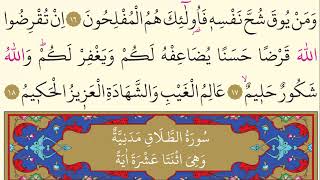 وَمَنْ يُوقَ شُحَّ نَفْسِهِ فَاُو۬لٰٓئِكَ هُمُ الْمُفْلِحُونَ ﴿١٦﴾ اِنْ تُقْرِضُوا
اللّٰهَ قَرْضًا حَسَنًا يُضَاعِفْهُ لَكُمْ وَيَغْفِرْ لَكُمْۜ وَاللّٰهُ
شَكُورٌ حَلِيمٌۙ ﴿١٧﴾ عَالِمُ الْغَيْبِ وَالشَّهَادَةِ الْعَزِيزُ الْحَكِيمُ ﴿١٨﴾
سُورَةُ الطَّلَاقِ مَدَنِيَّةٌ
وَهِيَ اثْنَتَا عَشْرَةَ اٰيَةً